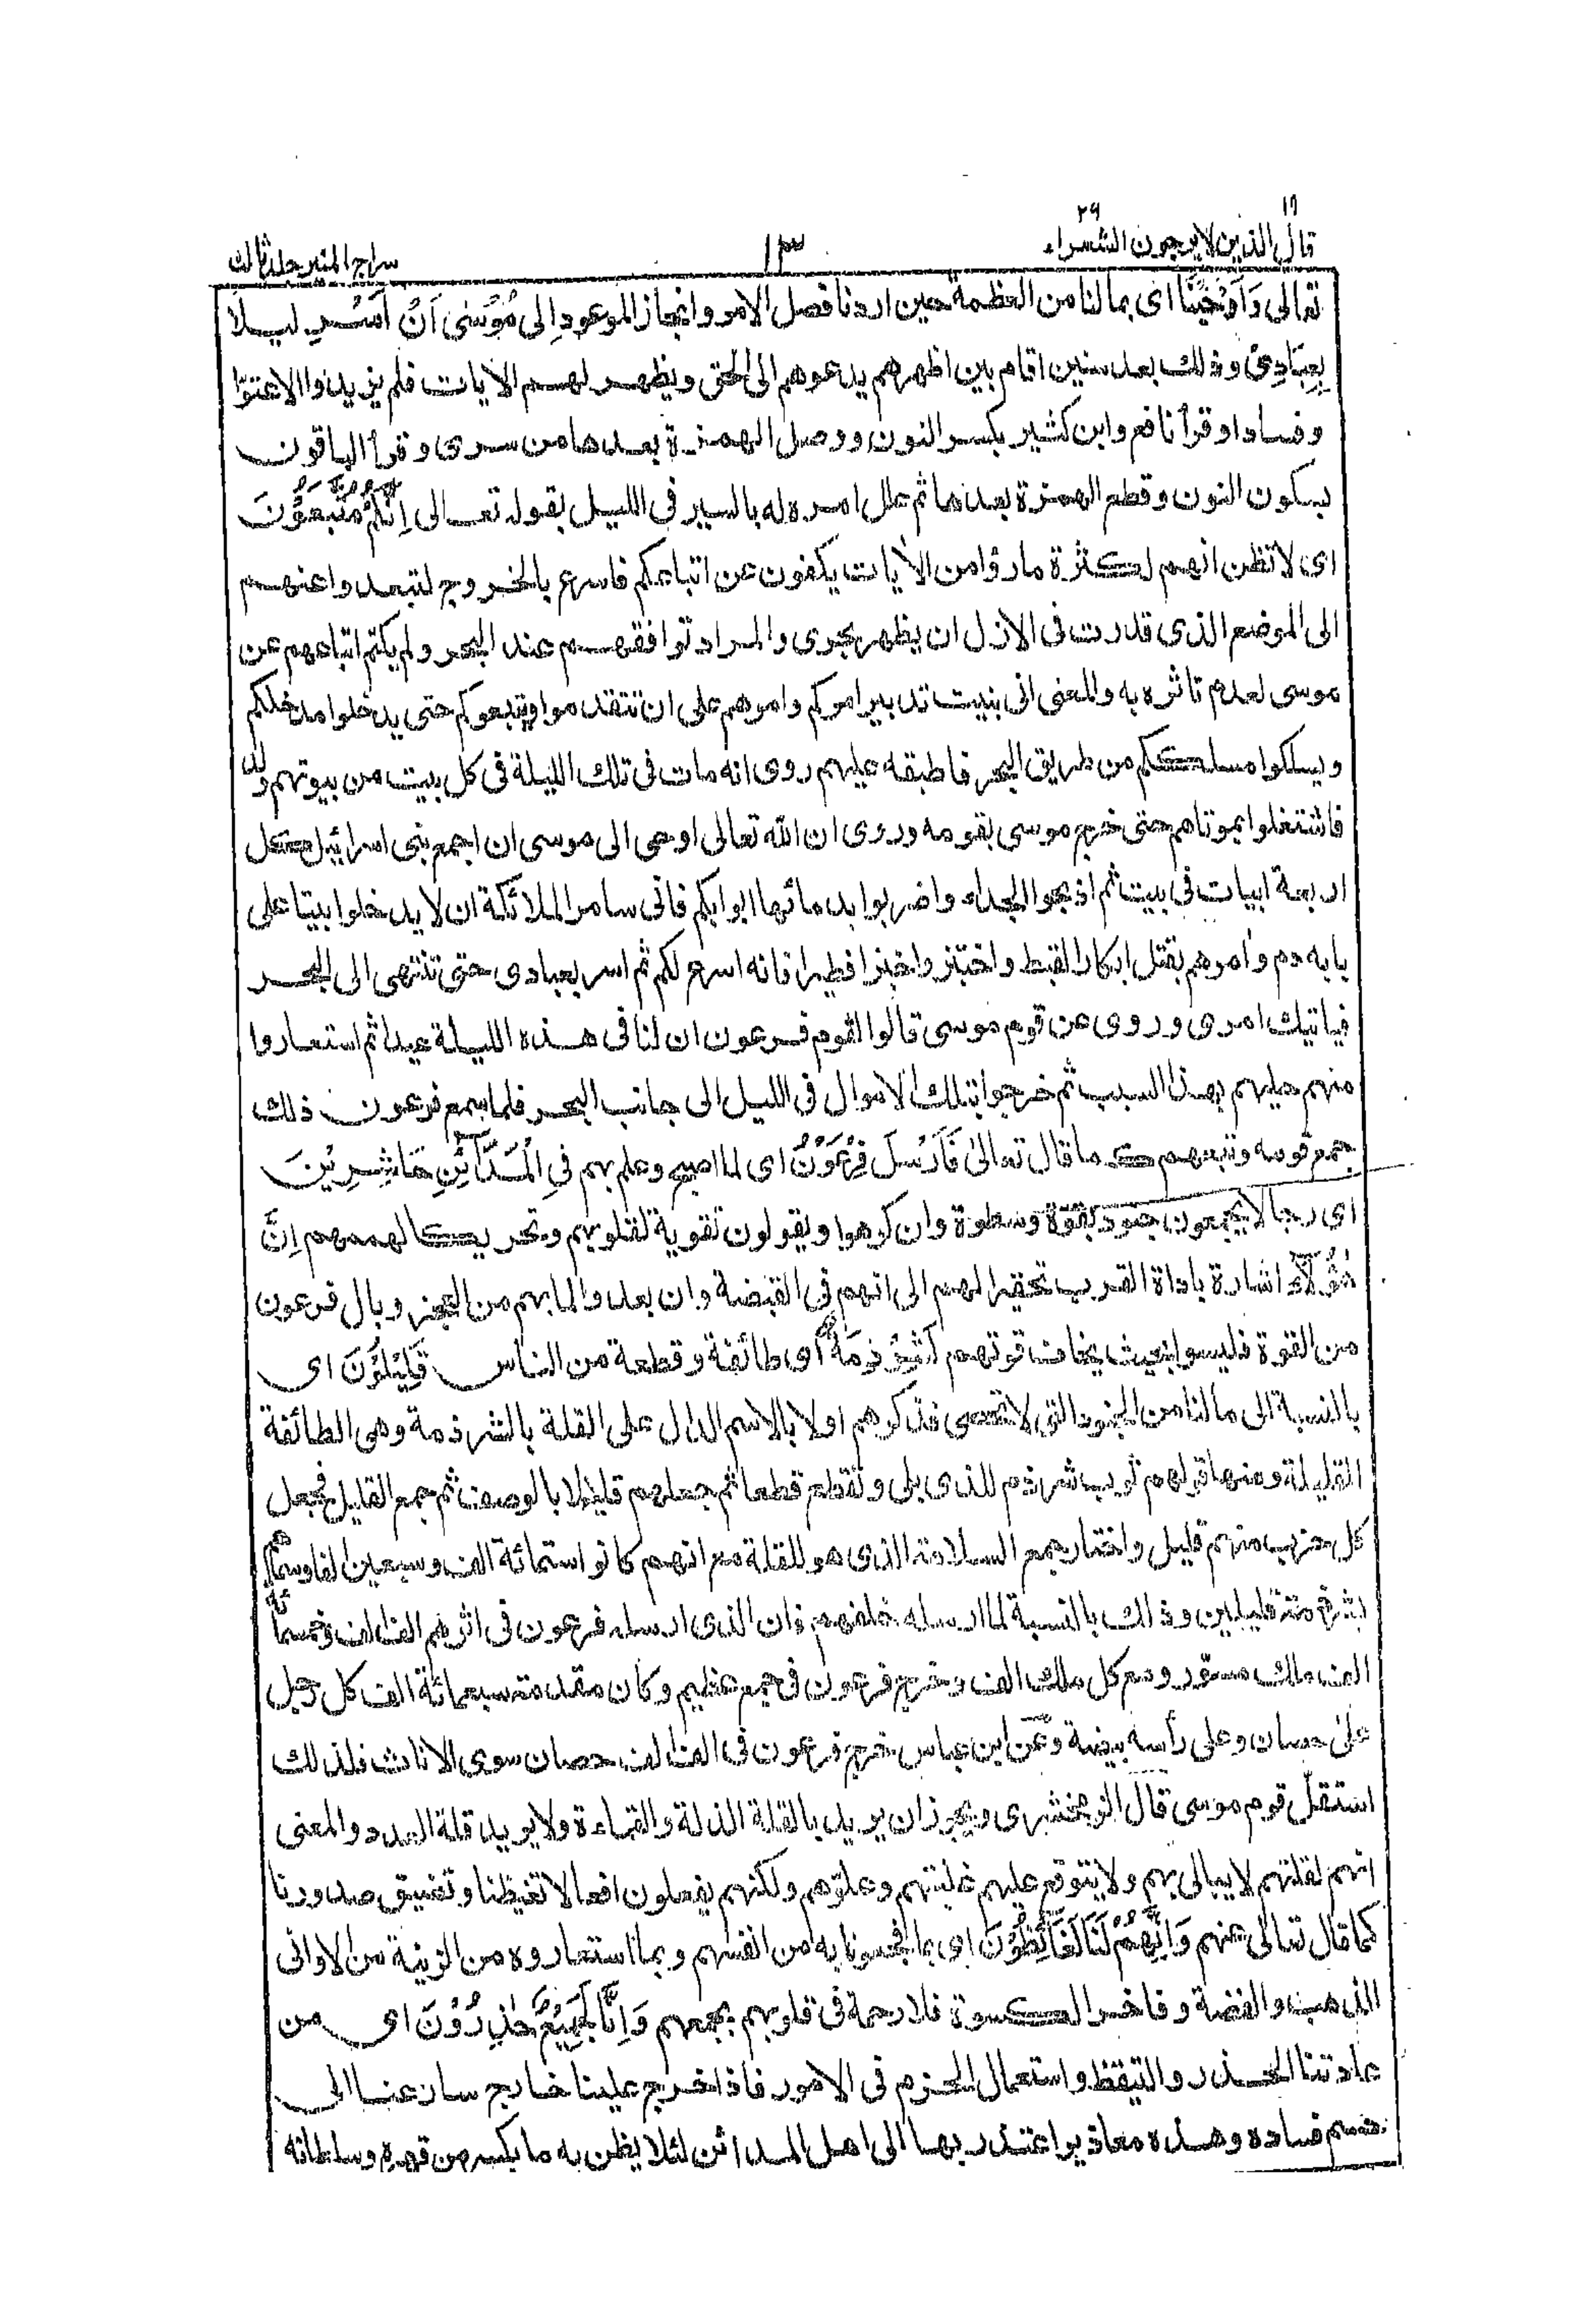 ١٩ ٢٦
قال الذين لا يرجون الشعراء ١٣ سراج المنير جلد ثالث
تعالى وَاَوْحَيْنَا اى بما لنا من العظمة حين اردنا فصل الامر وانجاز الموعود اِلى مُوْسٰى اَنْ اَسْرِ ليلا
بِعِبَادِىْ وذلك بعد سنين اقام بين اظهرهم يدعوهم الى الحق ويظهر لهم الايات فلم يزيدوا الاعتوّا
وفسادا وقرأ نافع وابن كثير بكسر النون ووصل الهمزة بعدها من سرى وقرأ الباقون
بسكون النون وقطع الهمزة بعدها ثم علل امره له بالسير فى الليل بقوله تعالى اِنَّكُمْ مُتَّبَعُوْنَ
اى لا تظن انهم لكثرة ما رؤا من الايات يكفون عن اتباعكم فاسرع بالخروج لتبعدوا عنهم
الى الموضع الذى قدرت فى الازل ان يظهر بجرى والمراد توافقهم عند البحر ولم يكتم اتباعهم عن
موسى لعدم تاثره به والمعنى انى بنيت تدبير امركم وامرهم على ان تتقدموا ويتبعوكم حتى يدخلوا مدخلكم
ويسلكوا مسلككم من طريق البحر فاطبقه عليهم روى انه مات فى تلك الليلة فى كل بيت من بيوتهم ولد
فاشتغلوا بموتاهم حتى خرج موسى بقومه وروى ان الله تعالى اوحى الى موسى ان اجمع بنى اسرائيل كل
اربعة ابيات فى بيت ثم اذبحوا الجداء واضربوا بدمائها ابوابكم فانى سامر الملائكة ان لا يدخلوا بيتا على
بابه دم وامرهم بقتل ابكار القبط واختبزوا خبزا فطيرا فانه اسرع لكم ثم اسر بعبادى حتى تنتهى الى البحر
فياتيك امرى وروى عن قوم موسى قالوا لقوم فرعون ان لنا فى هذه الليلة عيدا ثم استعاروا
منهم حليهم بهذا السبب ثم خرجوا بتلك الاموال فى الليل الى جانب البحر فلما سمع فرعون ذلك
جمع قومه وتبعهم كما قال تعالىٰ فَاَرْسَلَ فِرْعَوْنُ اى لما اصبح وعلم بهم فِى الْمَدَآئِنِ حَاشِرِيْنَ
اى رجالا يجمعون جنود بقوة وسطوة وان كرهوا ويقولون تقوية لقلوبهم وتحريكا لهممهم اِنَّ
هٰؤُلَآءِ اشارة باداة القرب تحقيرا لهم الى انهم فى القبضة وان بعدوا لما بهم من العجز وبال فرعون
من القوة فليسوا بحيث يخاف قوتهم لَشِرْذِمَةٌ اى طائفة وقطعة من الناس قَلِيْلُوْنَ اى
بالنسبة الى ما لنا من الجنود التى لا تحصى فذكرهم اولا بالاسم الدال على القلة بالشرذمة وهى الطائفة
القليلة ومنها قولهم ثوب شرذم للذى بلى وتقطع قطعا ثم جعلهم قليلا بالوصف ثم جمع القليل فجعل
كل حزب منهم قليل واختار جمع السلامة الذى هو للقلة مع انهم كانوا ستمائة الف وسبعين الفا وسماهم
شرذمة قليلين وذلك بالنسبة لما ارسله خلفهم فان الذى ارسله فرعون فى اثرهم الف الف وخمسمائة
الف ملك مسوّر ومع كل ملك الف وخرج فرعون فى جمع عظيم وكان مقدمته سبعمائة الف كل رجل
على حصان وعلى رأسه بيضة وعن ابن عباس خرج فرعون فى الف الف حصان سوى الاناث فلذلك
استقلّ قوم موسى قال الزمخشرى ويجوز ان يريد بالقلة الذلة والقماءة ولا يريد قلة العدد والمعنى
انهم لقلتهم لا يبالى بهم ولا يتوقع عليهم غلبتهم وعلوهم ولكنهم يفعلون افعالا تغيظنا وتضيق صدورنا
كما قال تعالى عنهم وَاِنَّهُمْ لَنَا لَغَآئِظُوْنَ اى بما فجعونا به من انفسهم وبما استعاروه من الزينة من الاوانى
الذهب والفضة وفاخر الكسوة فلا رحمة فى قلوبهم بجمعهم وَاِنَّا لَجَمِيْعٌ حٰذِرُوْنَ اى من
عادتنا الحذر والتيقظ واستعمال الحزم فى الامور فاذا خرج علينا خارج سارعنا الى
حسم فساده وهذه معاذير اعتذر بها الى اهل المدائن لئلا يظن به ما يكسر من قهره وسلطانه